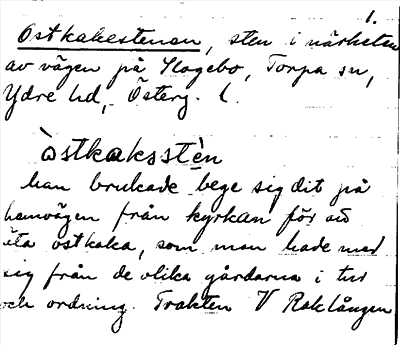 1.
Ostkakestenen, sten i närheten
av vägen på Skogebo, Torpa sn,
Ydre hd, Österg. l.
òstkaksstèn
han brukade bege sig dit på
hemvägen från kyrkan för att
äta ostkaka, som man hade med
sig från de olika gårdarna i tur
och ordning. Trakten V Raklången